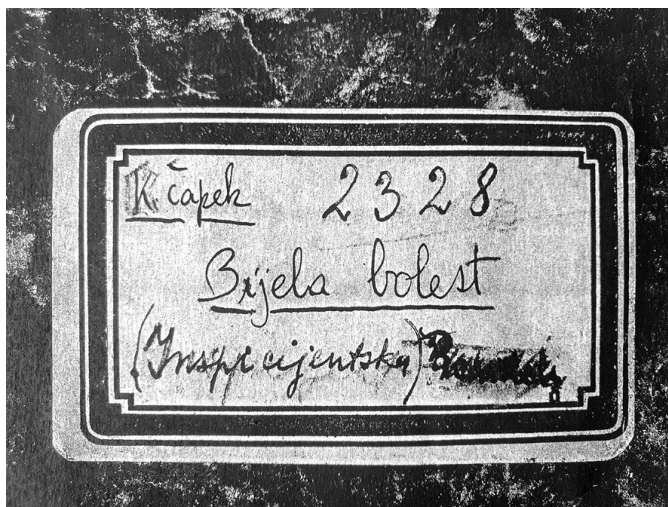 K Čapek 2328
Bijela bolest
(Inspicijentska)